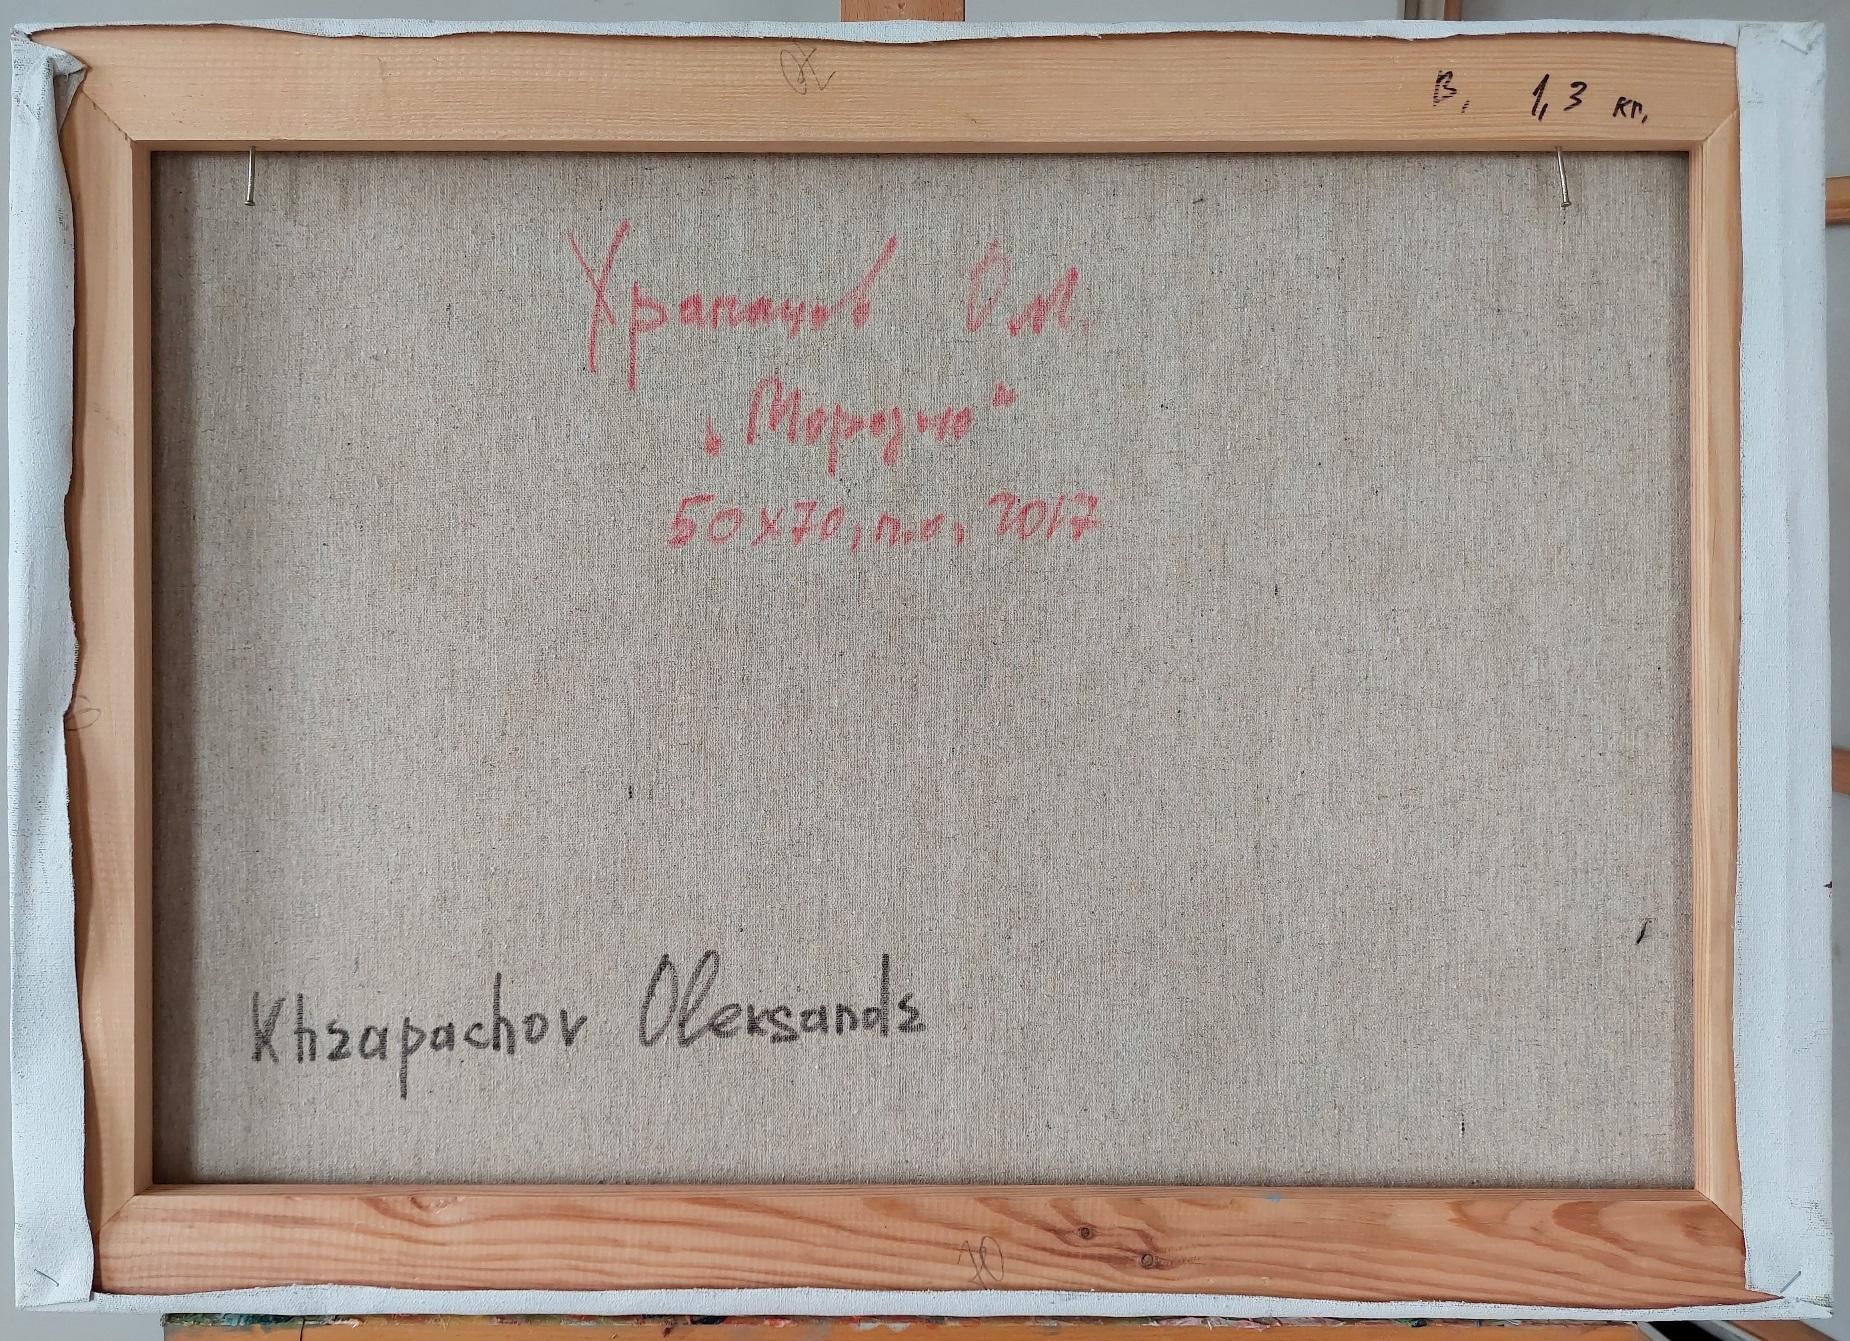 70
В. 1,3 кг.
Храпачов О.М.
„Морозно“
50х70, п.о, 2017
Khrapachov Oleksandr
70